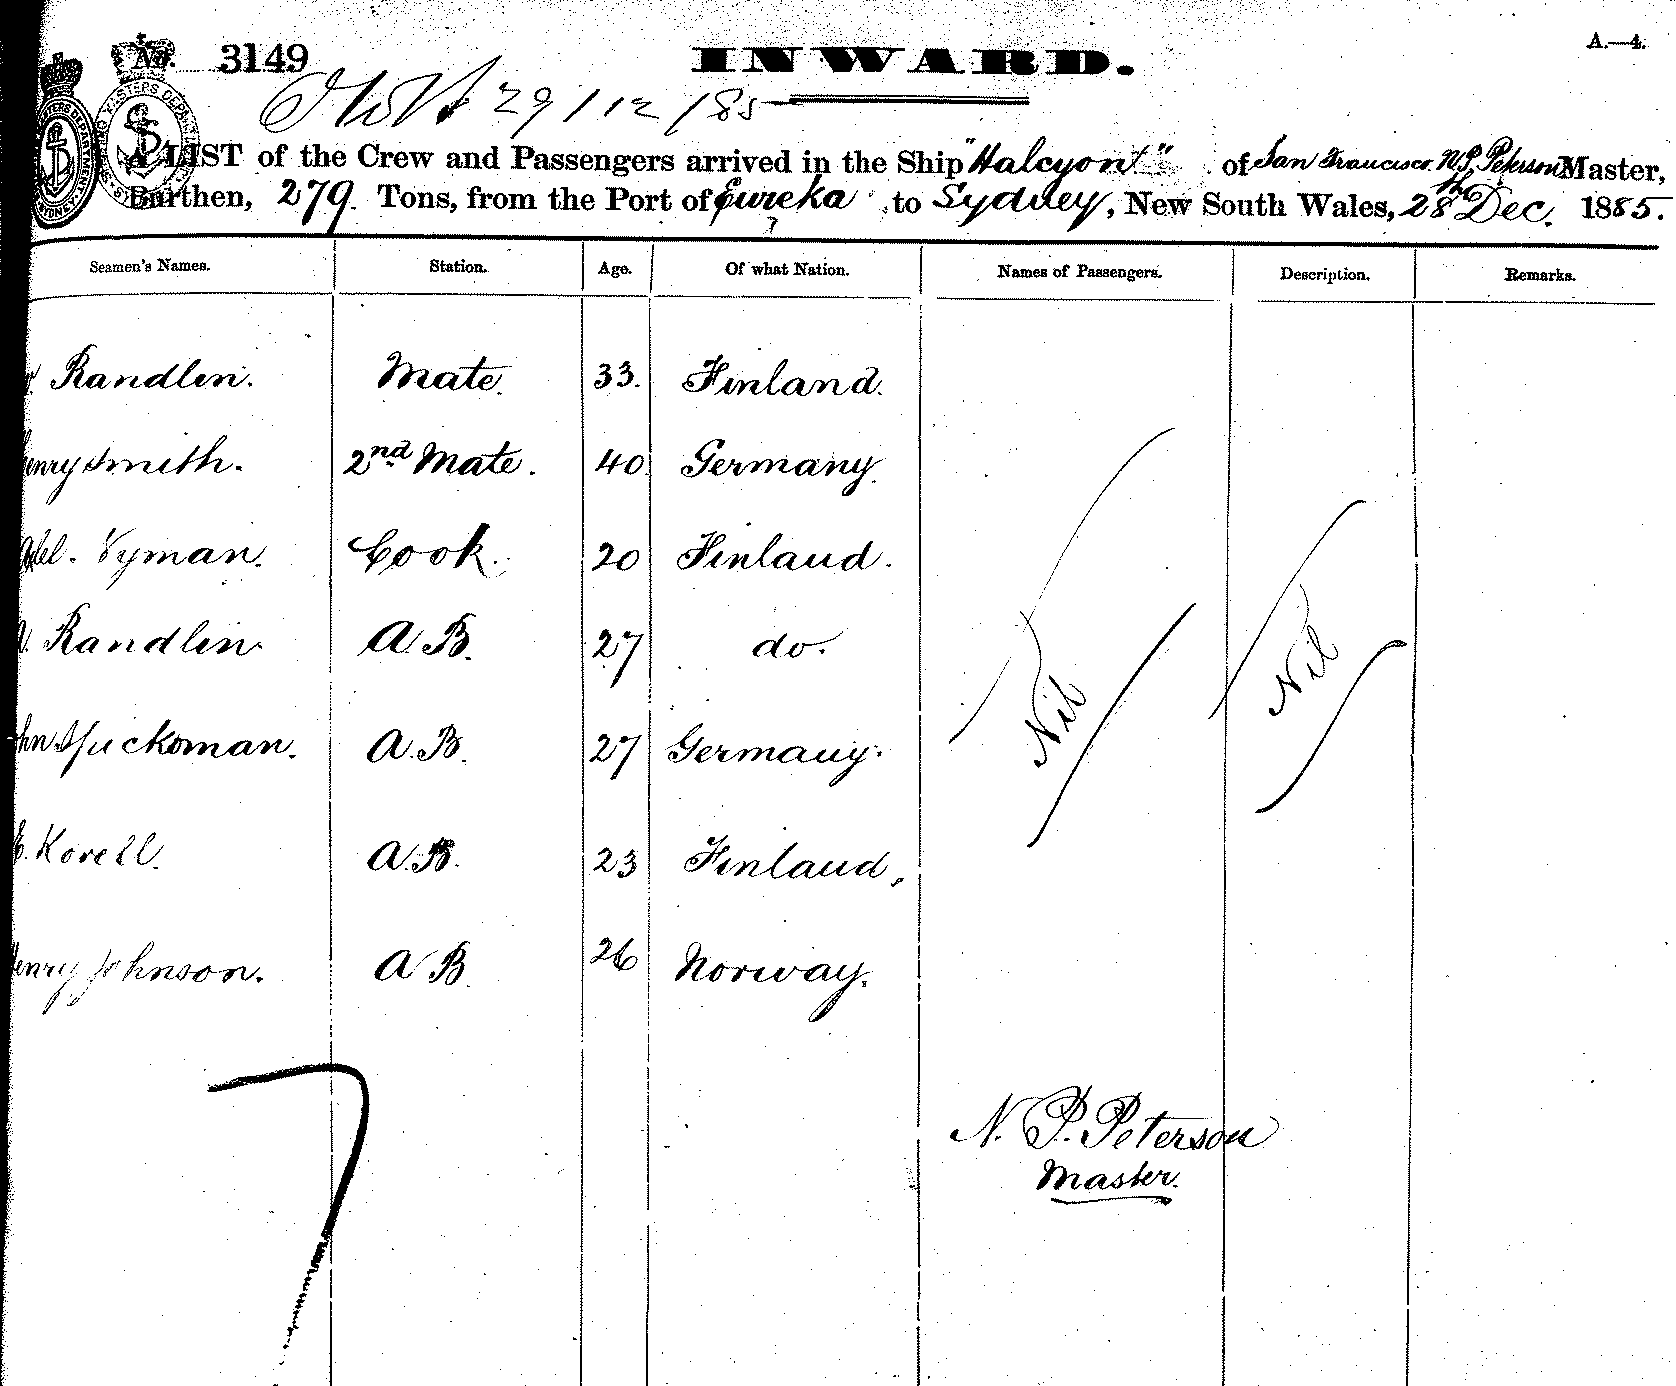 A.—4.
No. 3149
INWARD.
29/12/85
A LIST of the Crew and Passengers arrived in the Ship "Halcyon" of San Francisco N.P. Peterson Master,
Burthen, 279 Tons, from the Port of Eureka to Sydney, New South Wales, 28th Dec. 1885.
Seamen's Names. Station. Age. Of what Nation. Names of Passengers. Description. Remarks.
Randlin. Mate. 33. Finland.
Henry Smith. 2nd Mate. 40 Germany.
Cook. 20 Finland.
Randlin A.B. 27 do.
A.B. 27 Germany.
E. Korell. A.B. 23 Finland,
Henry Johnson. A B. 26 Norway.
Nil Nil
7
N. P. Peterson
Master.